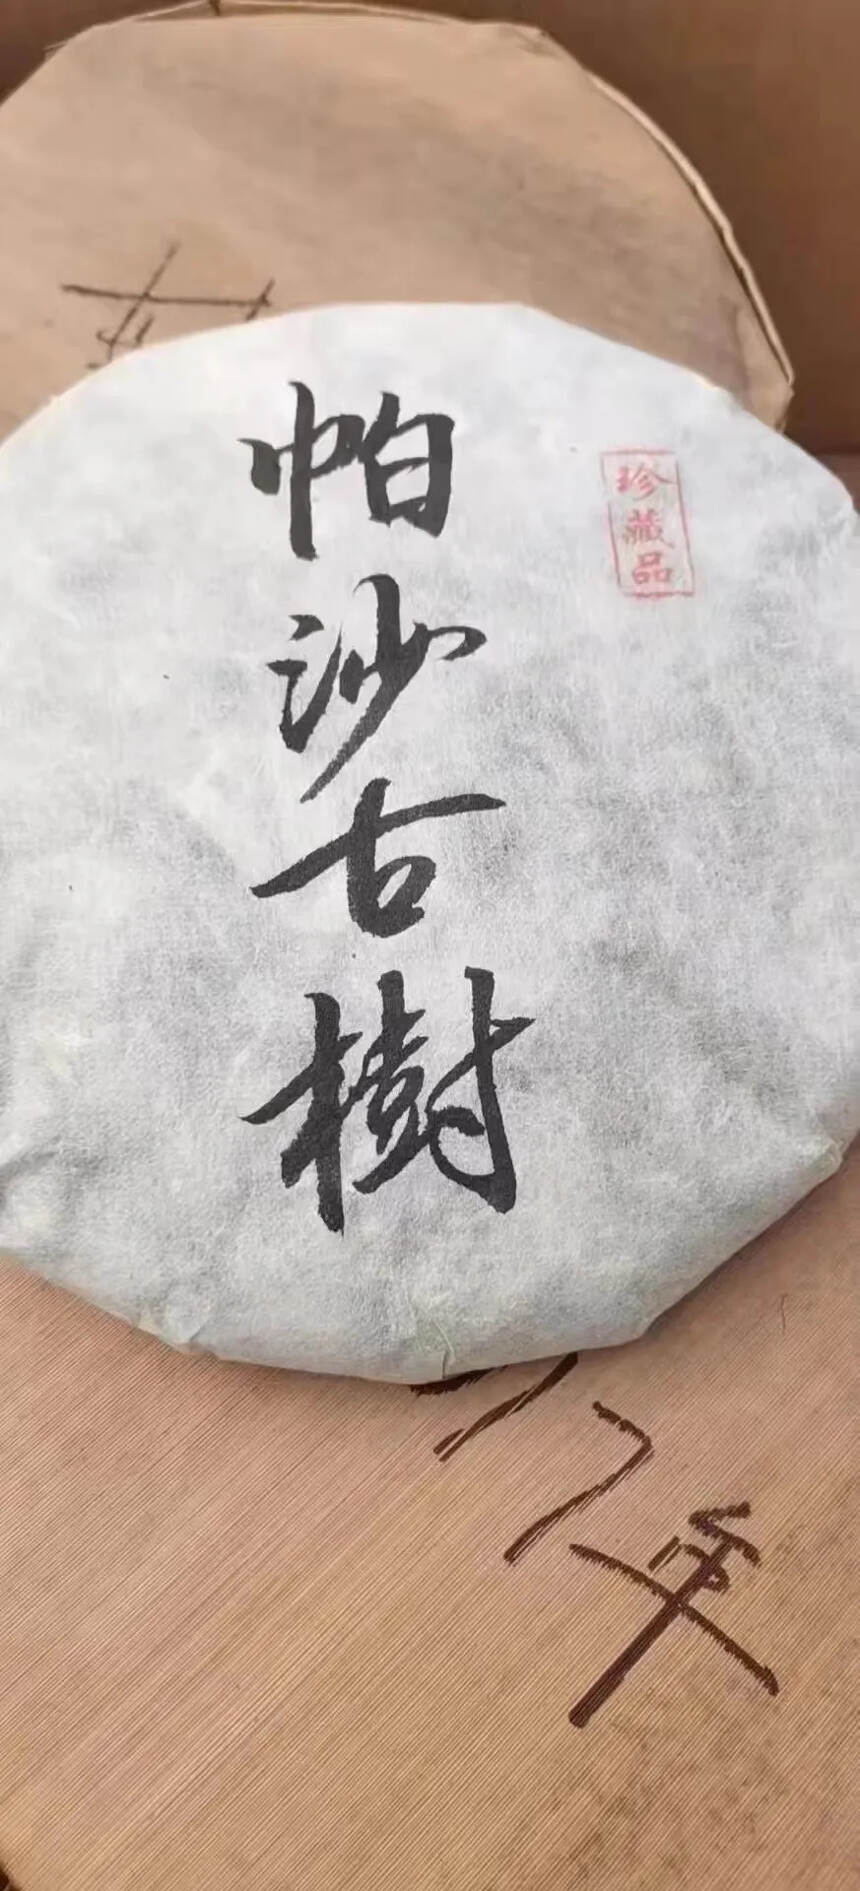 帕沙古樹
珍藏品
17年